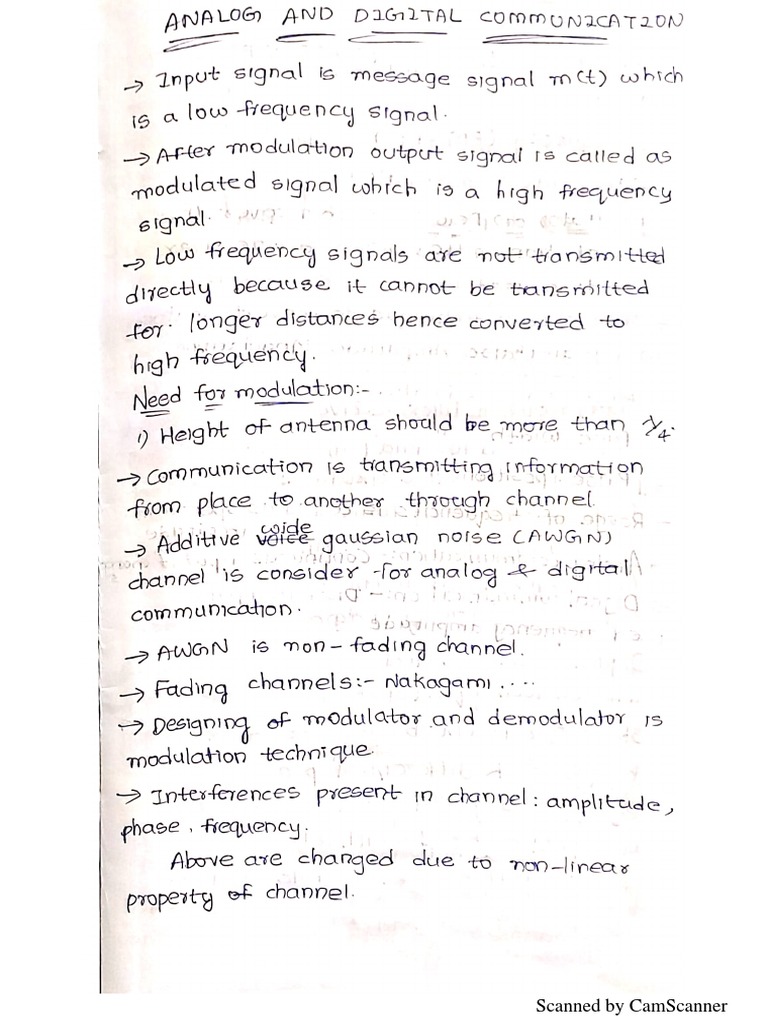 ANALOG AND DIGITAL COMMUNICATION
→ Input signal is message signal m(t) which
is a low frequency signal.
→ After modulation output signal is called as
modulated signal which is a high frequency
signal.
→ Low frequency signals are not transmitted
directly because it cannot be transmitted
for longer distances hence converted to
high frequency.
Need for modulation:-
1) Height of antenna should be more than λ/4.
→ Communication is transmitting information
from place to another through channel.
wide
→ Additive voice gaussian noise (AWGN)
channel is consider for analog & digital
communication.
→ AWGN is non-fading channel.
→ Fading channels:- Nakagami ....
→ Designing of modulator and demodulator is
modulation technique.
→ Interferences present in channel: amplitude,
phase, frequency.
Above are changed due to non-linear
property of channel.
Scanned by CamScanner